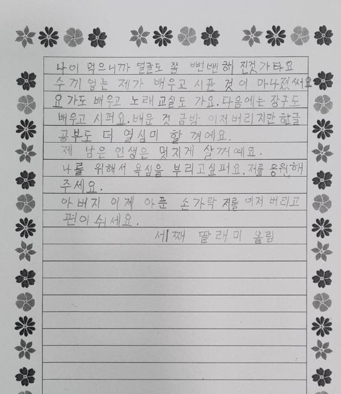 나이 먹으니까 얼굴도 좀 뻔뻔해 진것 가타요
수끼 업는 제가 배우고 시픈 것이 마나졌써요
요가도 배우고 노래교실도 가요. 다음에는 장구도
배우고 시퍼요. 배운 것 금방 이저버리지만 한글
공부도 더 열심미 할 꺼에요.
제 남은 인생은 멋지게 살꺼예요.
나를 위해서 욕심을 부리고실퍼요. 저를 응원해
주세요.
아버지 이제 아푼 손가락 저를 이저 버리고
편이 쉬세요.
세째 딸래미 올림